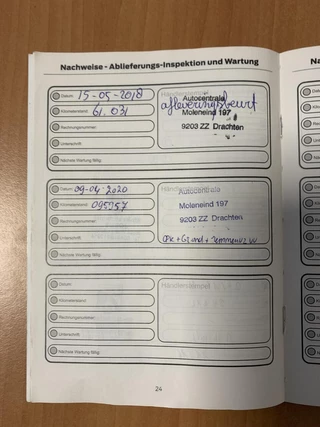 Nachweise - Ablieferungs-Inspektion und Wartung
Datum: 15-05-2018
Kilometerstand: 61.031
Rechnungsnummer:
Unterschrift:
Nächste Wartung fällig:
Autocentrale
afleveringsbeurt
Moleneind 197
9203 ZZ Drachten
Datum: 09-04-2020
Kilometerstand: 095957
Rechnungsnummer:
Unterschrift:
Nächste Wartung fällig:
Autocentrale
Moleneind 197
9203 ZZ Drachten
Datum:
Kilometerstand:
Rechnungsnummer:
Unterschrift:
Nächste Wartung fällig:
Händlerstempel
24